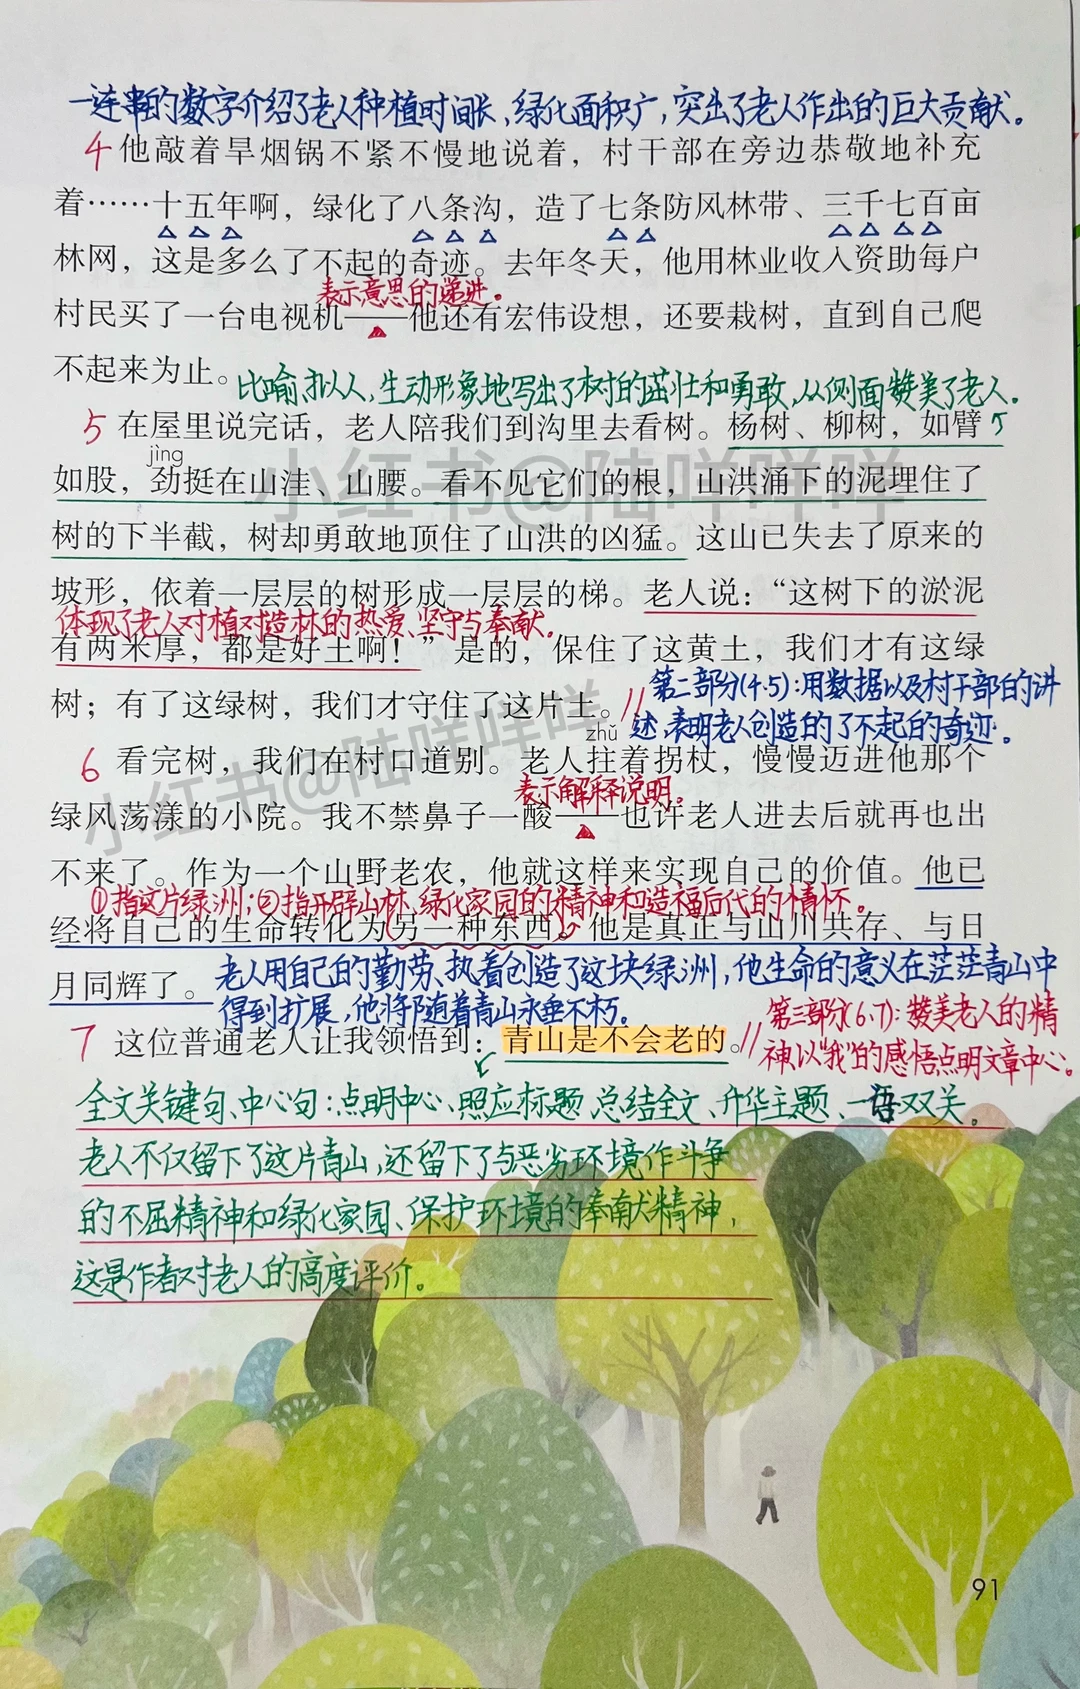 一连串的数字介绍了老人种植时间长、绿化面积广，突出了老人作出的巨大贡献。
4 他敲着旱烟锅不紧不慢地说着，村干部在旁边恭敬地补充
着……十五年啊，绿化了八条沟，造了七条防风林带、三千七百亩
林网，这是多么了不起的奇迹。去年冬天，他用林业收入资助每户
表示意思的递进。
村民买了一台电视机——他还有宏伟设想，还要栽树，直到自己爬
不起来为止。
比喻、拟人，生动形象地写出了树的茁壮和勇敢，从侧面赞美了老人。
5 在屋里说完话，老人陪我们到沟里去看树。杨树、柳树，如臂
jìng
如股，劲挺在山洼、山腰。看不见它们的根，山洪涌下的泥埋住了
树的下半截，树却勇敢地顶住了山洪的凶猛。这山已失去了原来的
坡形，依着一层层的树形成一层层的梯。老人说：“这树下的淤泥
体现了老人对植树造林的热爱、坚守与奉献。
有两米厚，都是好土啊！”是的，保住了这黄土，我们才有这绿
树；有了这绿树，我们才守住了这片土。
第二部分(4·5)：用数据以及村干部的讲
述，表明老人创造的了不起的奇迹。
zhǔ
6 看完树，我们在村口道别。老人拄着拐杖，慢慢迈进他那个
表示解释说明。
绿风荡漾的小院。我不禁鼻子一酸——也许老人进去后就再也出
不来了。作为一个山野老农，他就这样来实现自己的价值。他已
①指这片绿洲；②指开辟山林、绿化家园的精神和造福后代的情怀。
经将自己的生命转化为另一种东西。他是真正与山川共存、与日
月同辉了。
老人用自己的勤劳、执着创造了这块绿洲，他生命的意义在茫茫青山中
得到扩展，他将随着青山永垂不朽。
7 这位普通老人让我领悟到：青山是不会老的。
第三部分(6·7)：赞美老人的精
神，以“我”的感悟点明文章中心。
全文关键句、中心句：点明中心、照应标题、总结全文、升华主题、一语双关。
老人不仅留下了这片青山，还留下了与恶劣环境作斗争
的不屈精神和绿化家园、保护环境的奉献精神，
这是作者对老人的高度评价。
小红书@陆咩咩咩
小红书@陆咩咩咩
91